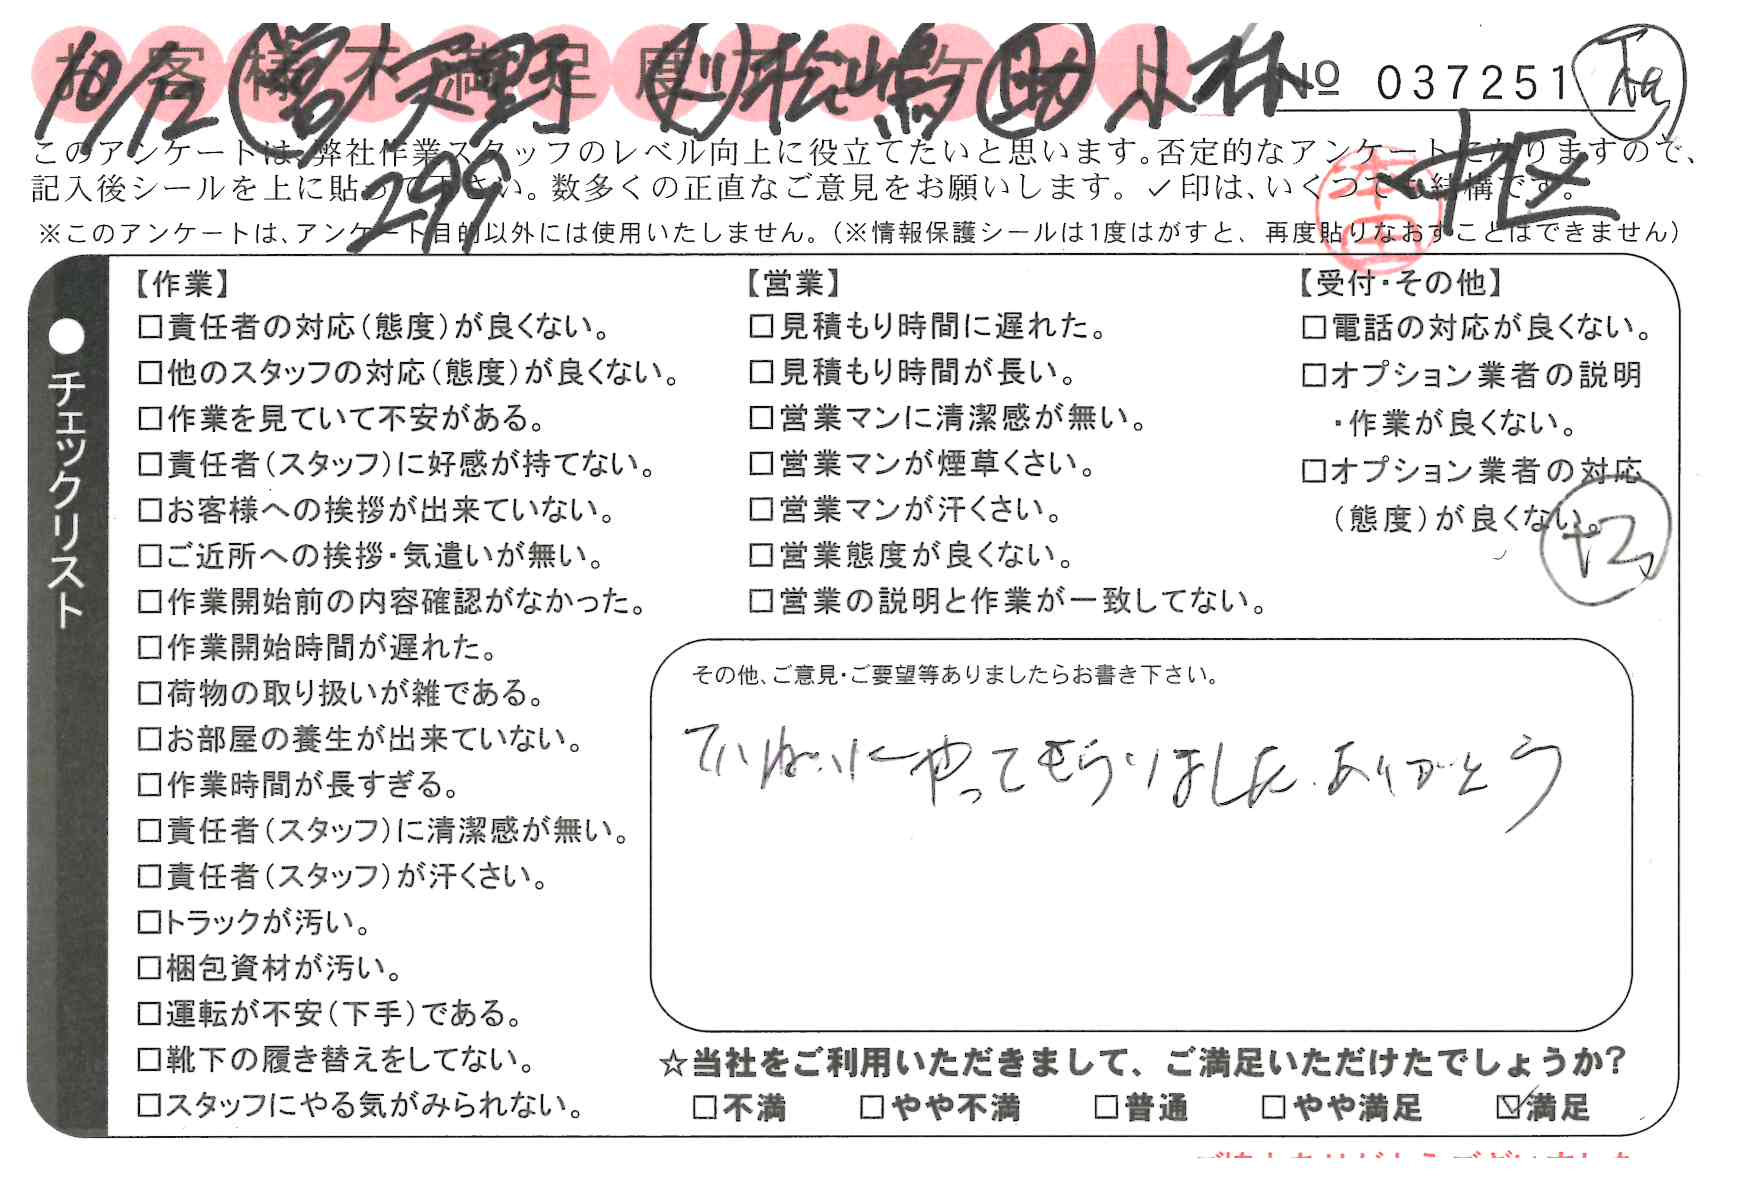 お客様不満足度アンケート
10/12 営 天野 リ 松嶋 助 小林
№ 037251
このアンケートは、弊社作業スタッフのレベル向上に役立てたいと思います。否定的なアンケートになりますので、
記入後シールを上に貼って下さい。数多くの正直なご意見をお願いします。✓印は、いくつでも結構です。
299
中区
※このアンケートは、アンケート目的以外には使用いたしません。(※情報保護シールは1度はがすと、再度貼りなおすことはできません)
●チェックリスト
【作業】
□責任者の対応(態度)が良くない。
□他のスタッフの対応(態度)が良くない。
□作業を見ていて不安がある。
□責任者(スタッフ)に好感が持てない。
□お客様への挨拶が出来ていない。
□ご近所への挨拶・気遣いが無い。
□作業開始前の内容確認がなかった。
□作業開始時間が遅れた。
□荷物の取り扱いが雑である。
□お部屋の養生が出来ていない。
□作業時間が長すぎる。
□責任者(スタッフ)に清潔感が無い。
□責任者(スタッフ)が汗くさい。
□トラックが汚い。
□梱包資材が汚い。
□運転が不安(下手)である。
□靴下の履き替えをしてない。
□スタッフにやる気がみられない。
【営業】
□見積もり時間に遅れた。
□見積もり時間が長い。
□営業マンに清潔感が無い。
□営業マンが煙草くさい。
□営業マンが汗くさい。
□営業態度が良くない。
□営業の説明と作業が一致してない。
【受付・その他】
□電話の対応が良くない。
□オプション業者の説明
・作業が良くない。
□オプション業者の対応
(態度)が良くない。
その他、ご意見・ご要望等ありましたらお書き下さい。
ていねいにやってもらいました。ありがとう
☆当社をご利用いただきまして、ご満足いただけたでしょうか?
□不満 □やや不満 □普通 □やや満足 ☑満足